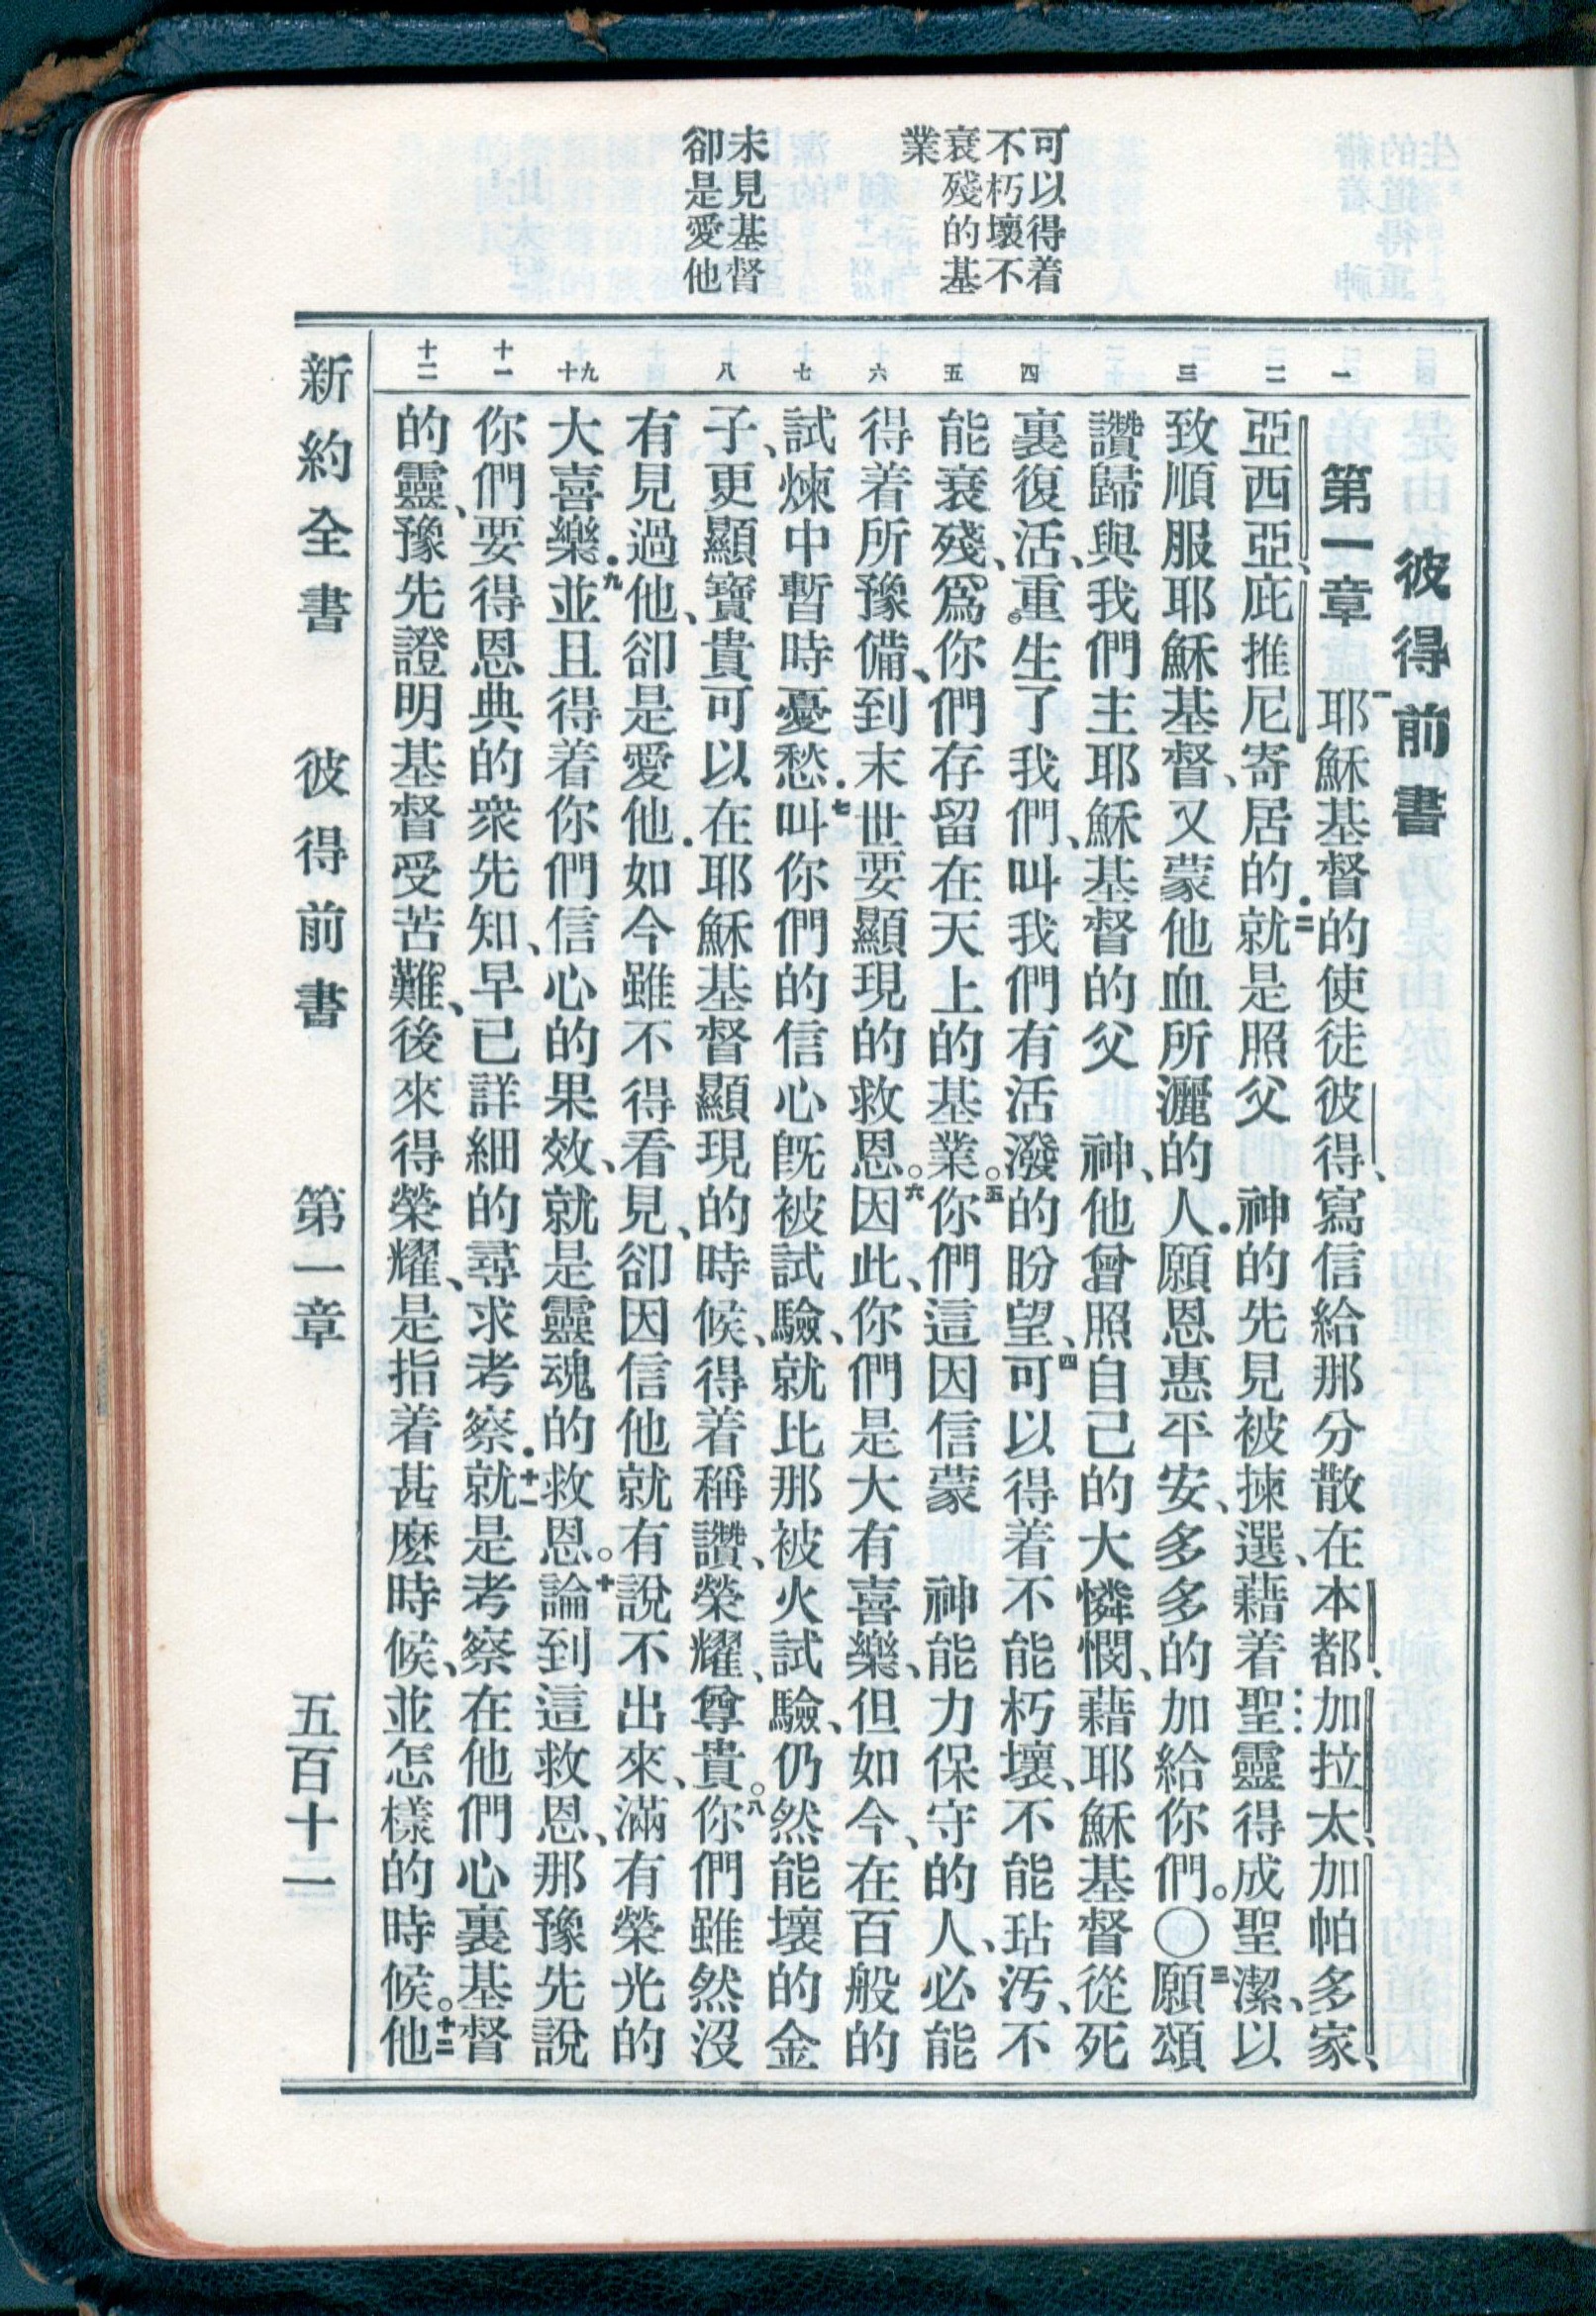 可以得着
不朽壞不
衰殘的基
業
未見基督
卻是愛他
一
二
三
四
五
六
七
八
九
十
十一
十二
彼得前書
第一章 一耶穌基督的使徒彼得、寫信給那分散在本都、加拉太、加帕多家、
亞西亞、庇推尼寄居的．二就是照父 神的先見被揀選、藉着聖靈得成聖潔、以
致順服耶穌基督、又蒙他血所灑的人．願恩惠平安、多多的加給你們。〇三願頌
讚歸與我們主耶穌基督的父 神、他曾照自己的大憐憫、藉耶穌基督從死
裏復活、重生了我們、叫我們有活潑的盼望、四可以得着不能朽壞、不能玷汚、不
能衰殘、爲你們存留在天上的基業。五你們這因信蒙 神能力保守的人、必能
得着所豫備、到末世要顯現的救恩。六因此、你們是大有喜樂、但如今、在百般的
試煉中暫時憂愁．七叫你們的信心旣被試驗、就比那被火試驗、仍然能壞的金
子、更顯寶貴可以在耶穌基督顯現的時候、得着稱讚、榮耀、尊貴。八你們雖然沒
有見過他、卻是愛他．如今雖不得看見、卻因信他就有說不出來、滿有榮光的
大喜樂．九並且得着你們信心的果效、就是靈魂的救恩。十論到這救恩、那豫先說
你們要得恩典的衆先知、早已詳細的尋求考察．十一就是考察在他們心裏基督
的靈、豫先證明基督受苦難、後來得榮耀、是指着甚麼時候、並怎樣的時候。十二他
新約全書 彼得前書 第一章 五百十二